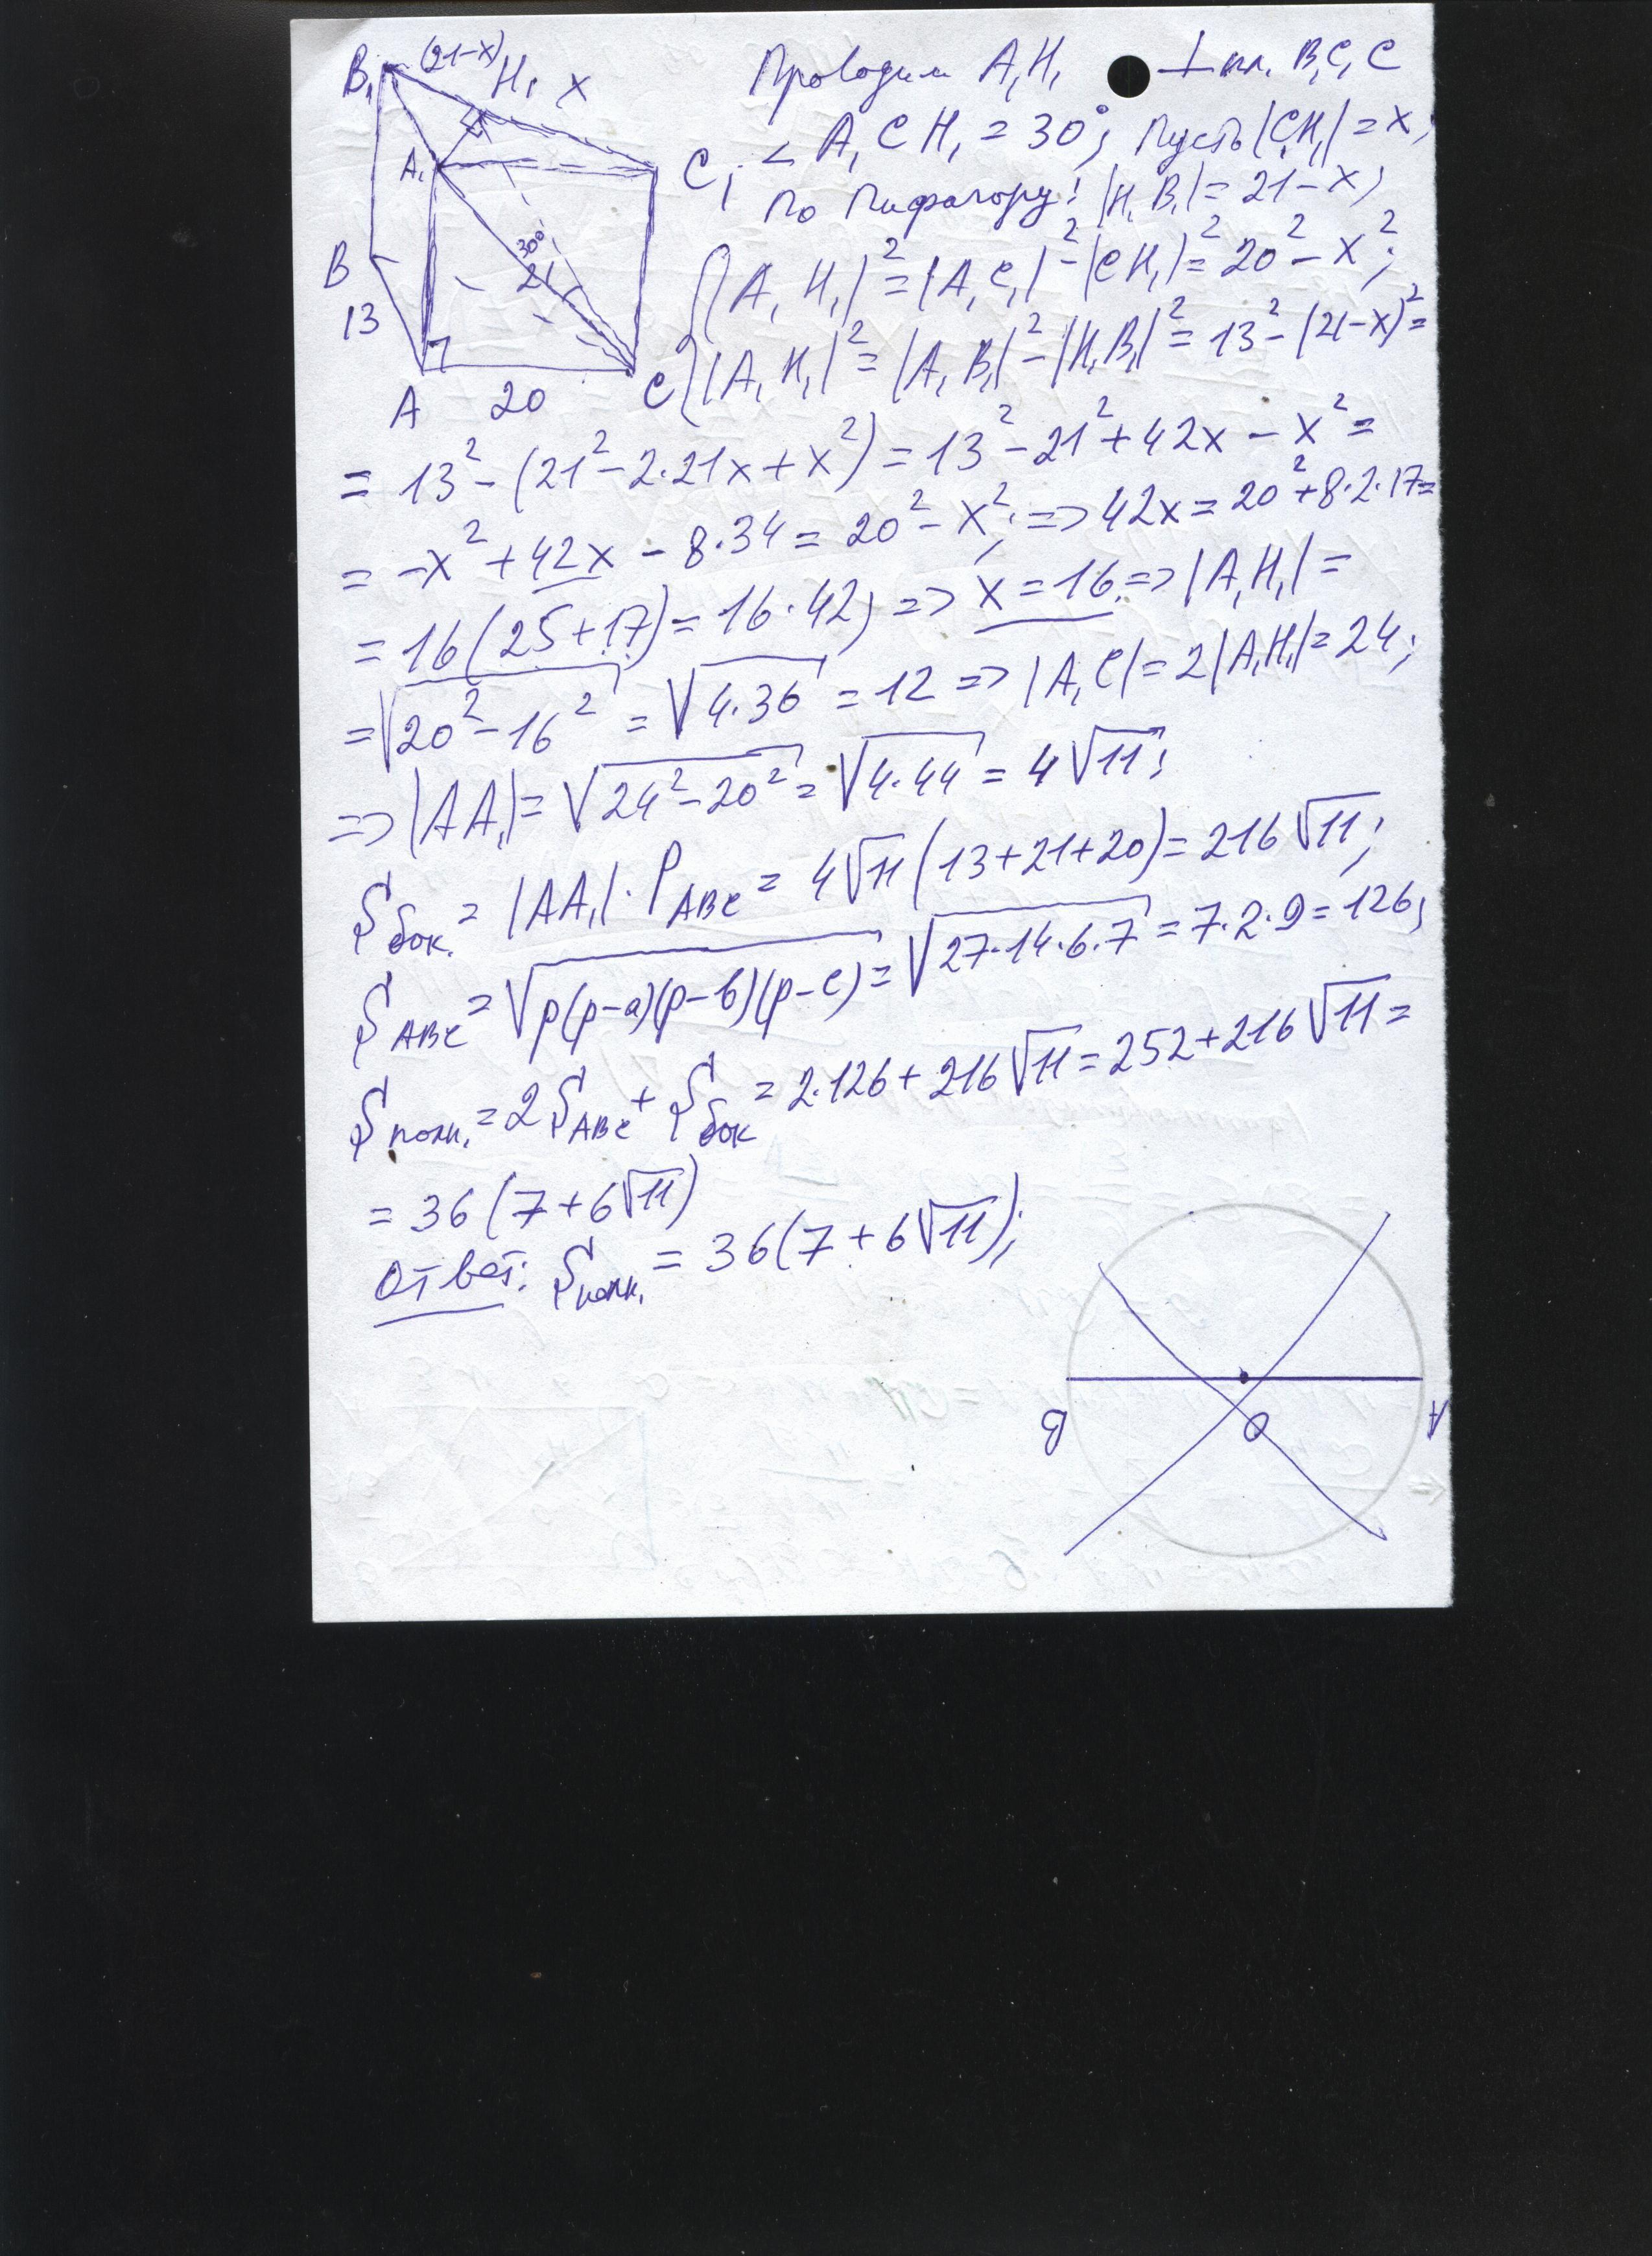 B₁ (21-x) H₁ x
A₁ C₁
30°
B 21
13
A 20 C
Проводим A₁H₁ ⊥ пл. B₁C₁C
∠ A₁CH₁ = 30°; Пусть |C₁H₁| = x;
По Пифагору: |H₁B₁| = 21-x;
{ |A₁H₁|² = |A₁C₁|² - |CH₁|² = 20² - x²;
|A₁H₁|² = |A₁B₁|² - |H₁B₁|² = 13² - (21-x)² =
= 13² - (21² - 2·21x + x²) = 13² - 21² + 42x - x² =
= -x² + 42x - 8·34 = 20² - x²; => 42x = 20² + 8·2·17 =
= 16(25+17) = 16·42; => x = 16 => |A₁H₁| =
= √(20² - 16²) = √(4·36) = 12 => |A₁C| = 2|A₁H₁| = 24;
=> |AA₁| = √(24² - 20²) = √(4·44) = 4√11;
Sбок. = |AA₁|·P_ABC = 4√11(13+21+20) = 216√11;
S_ABC = √(p(p-a)(p-b)(p-c)) = √(27·14·6·7) = 7·2·9 = 126;
Sполн. = 2S_ABC + Sбок = 2·126 + 216√11 = 252 + 216√11 =
= 36(7+6√11)
Ответ: Sполн. = 36(7+6√11);
B O A